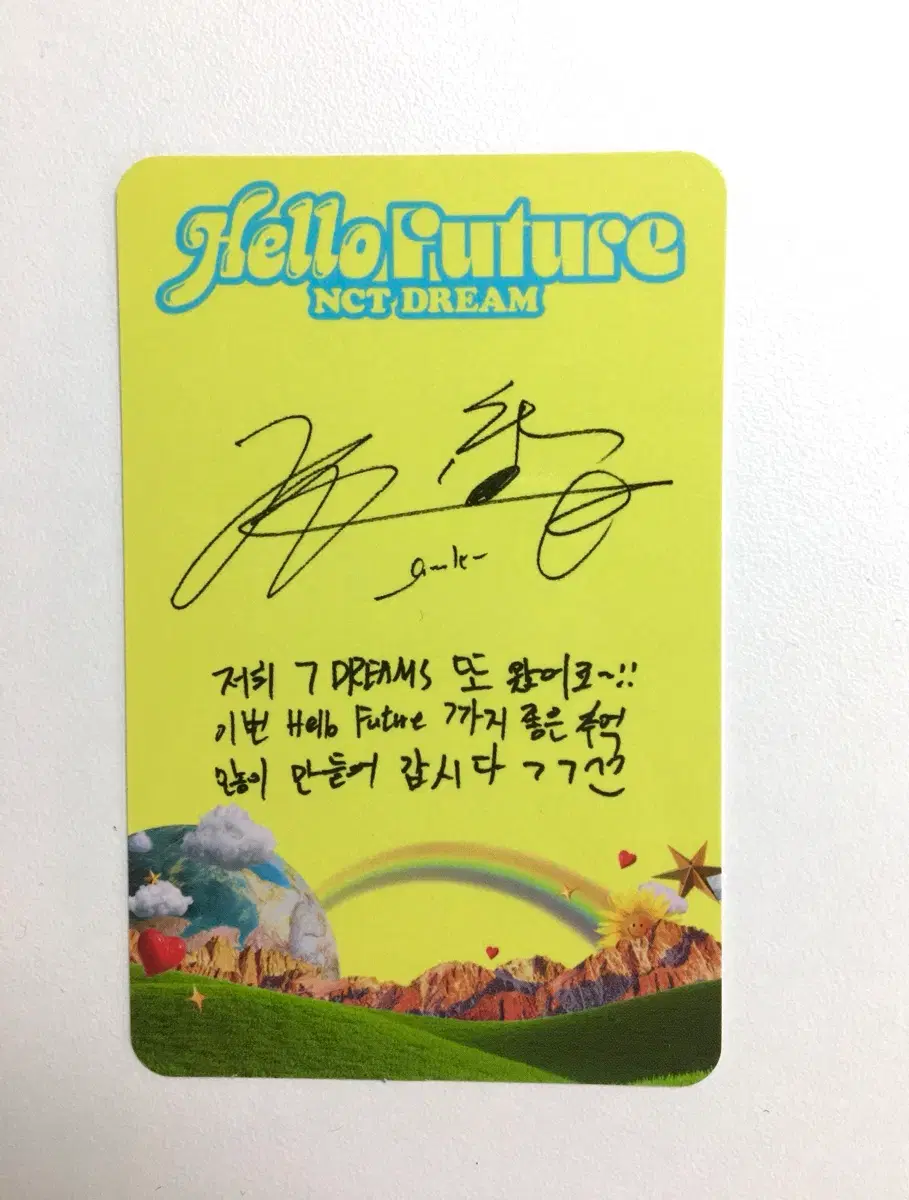 Hello Future
NCT DREAM
저희 7 DREAMS 또 왔어요~!!
이번 Hello Future 7까지 좋은 추억
많이 만들어 갑시다 ㄱㄱ